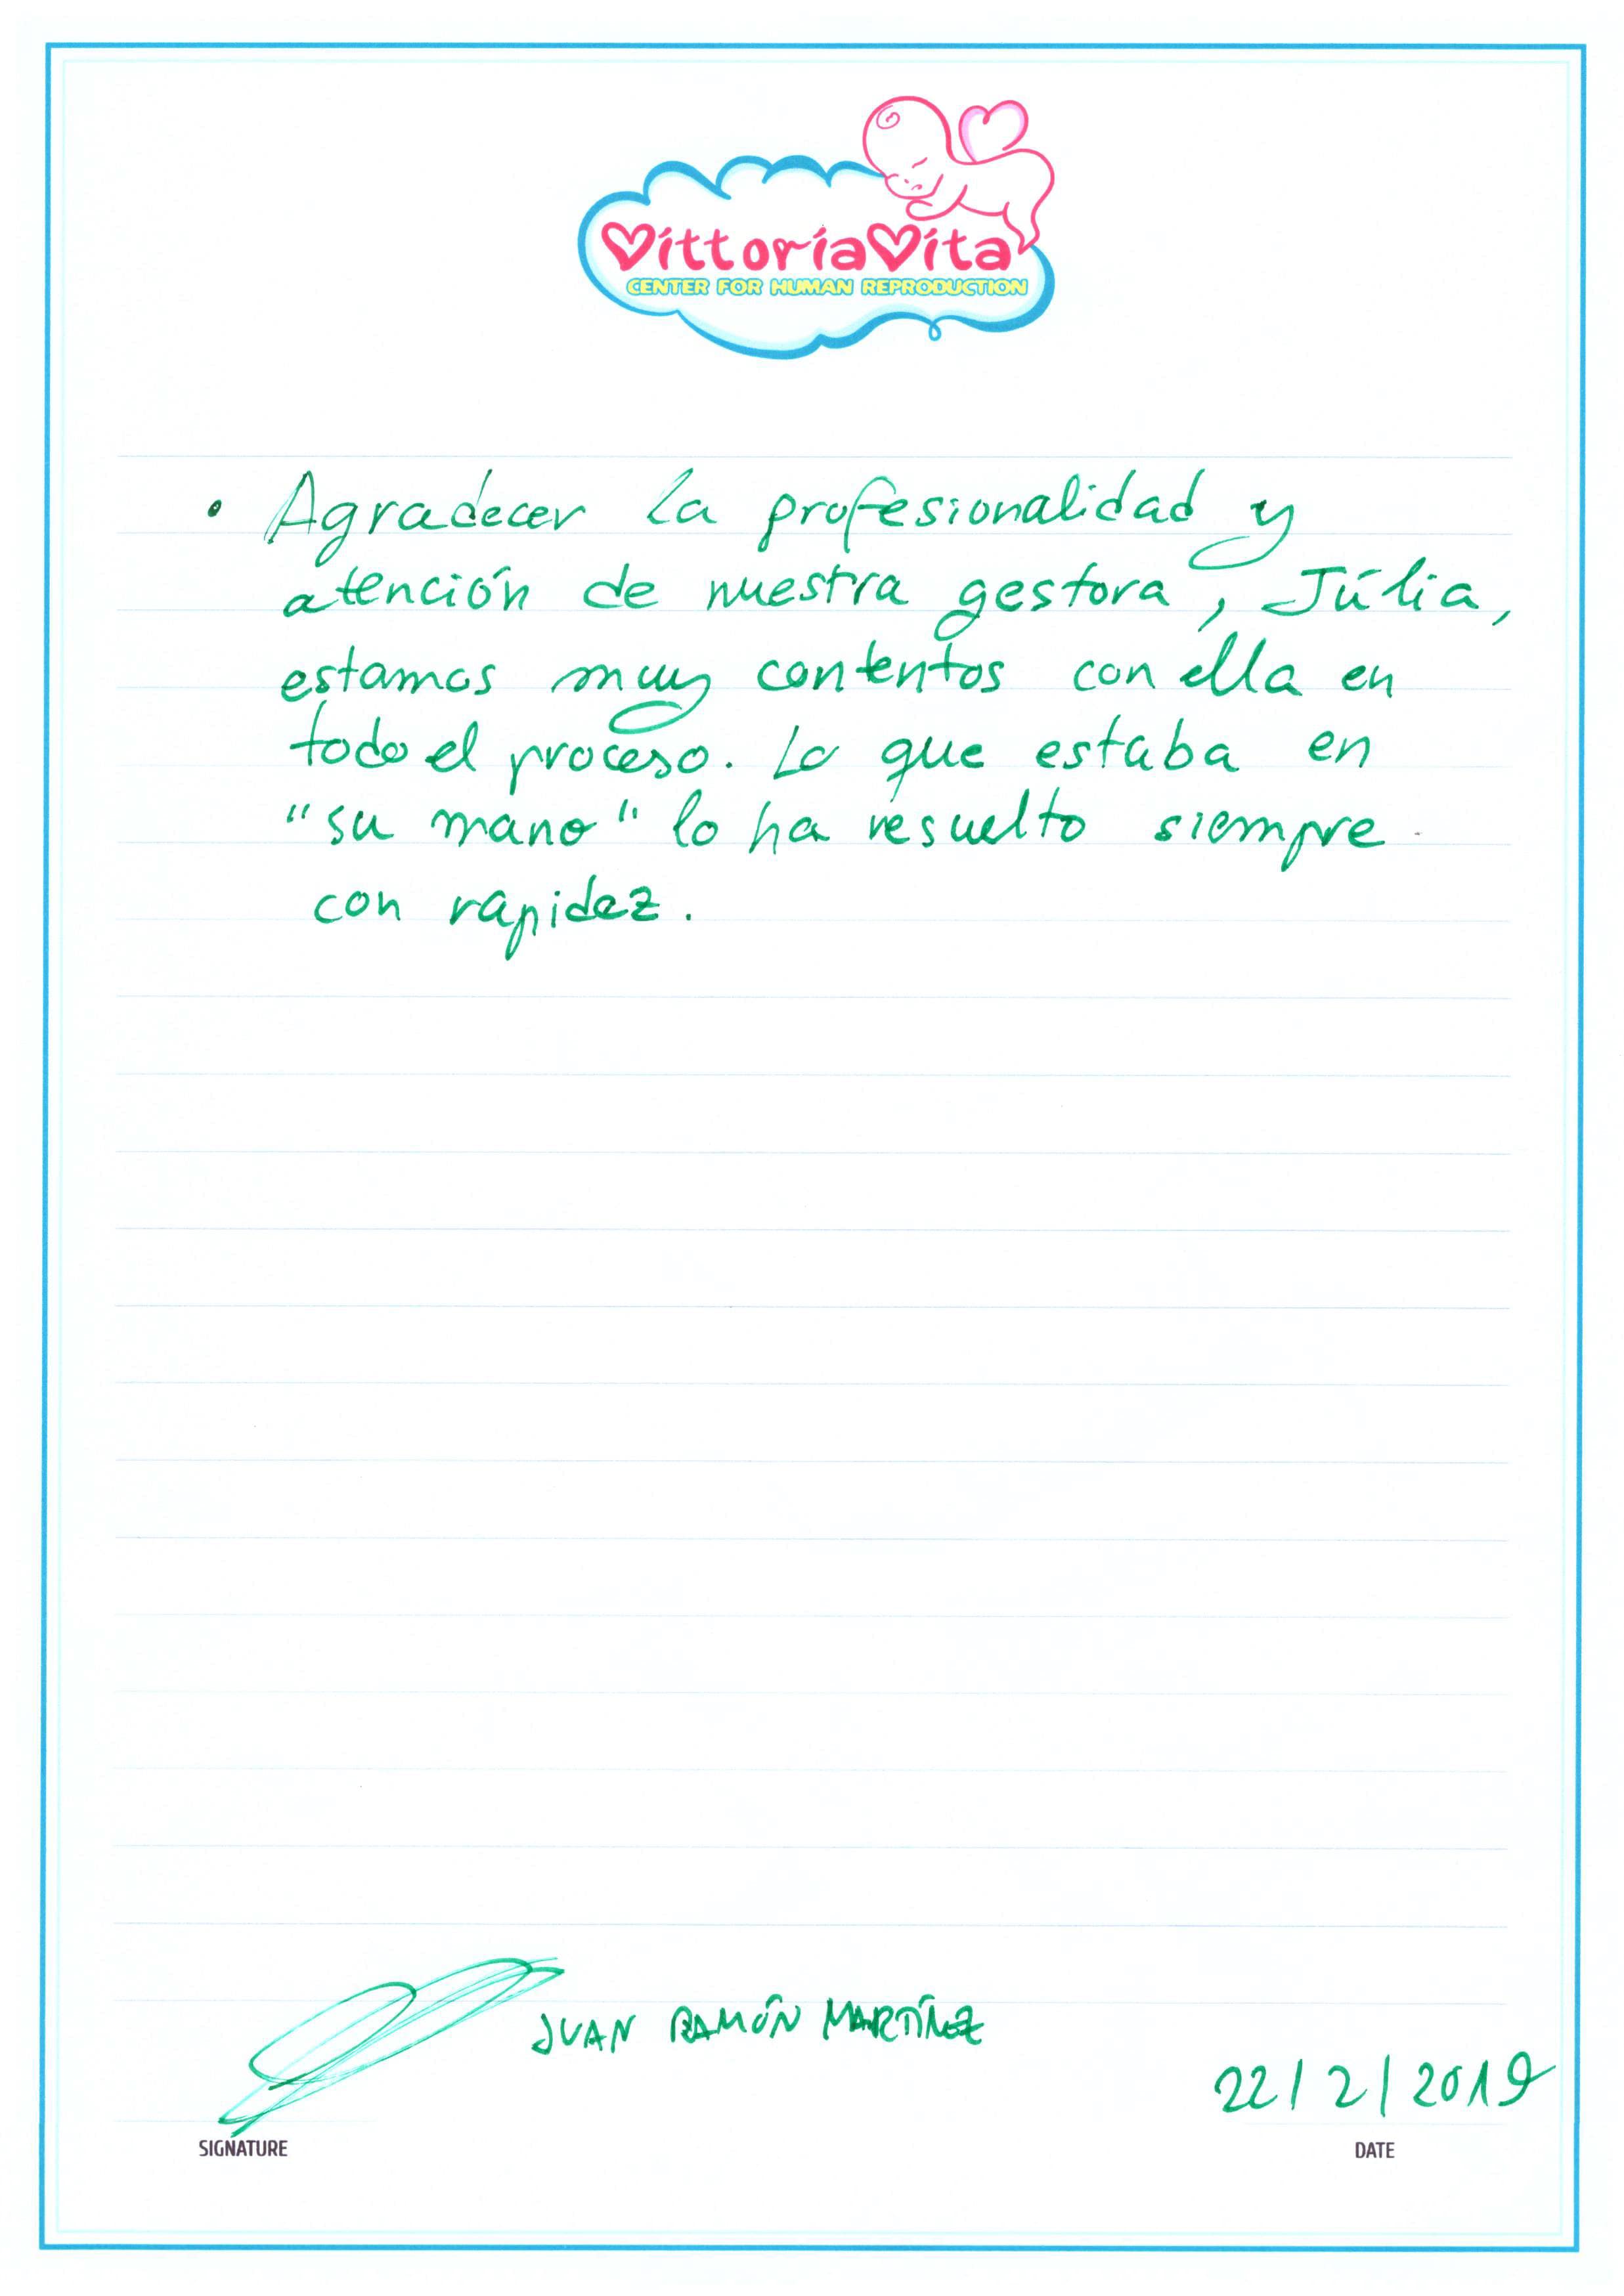 VittoriaVita
CENTER FOR HUMAN REPRODUCTION
• Agradecer la profesionalidad y
atención de nuestra gestora, Júlia,
estamos muy contentos con ella en
todo el proceso. Lo que estaba en
"su mano" lo ha resuelto siempre
con rapidez.
JUAN RAMÓN MARTÍNEZ
22/2/2019
SIGNATURE
DATE